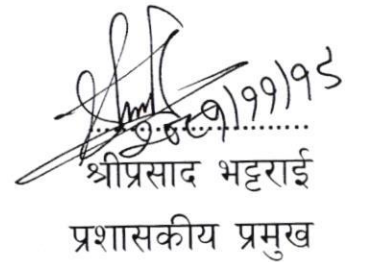 २०८१/११/१८
श्रीप्रसाद भट्टराई
प्रशासकीय प्रमुख